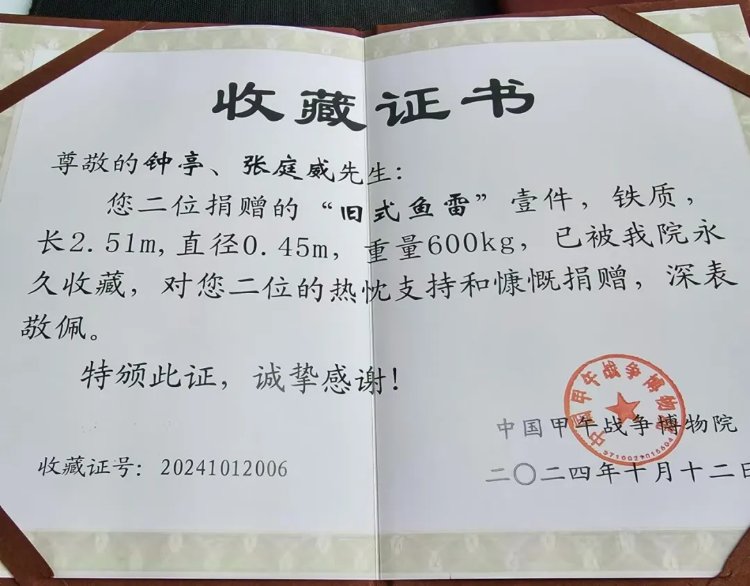 收藏证书
尊敬的钟亭、张庭威先生：
您二位捐赠的“旧式鱼雷”壹件，铁质，
长2.51m，直径0.45m，重量600kg，已被我院永
久收藏，对您二位的热忱支持和慷慨捐赠，深表
敬佩。
特颁此证，诚挚感谢！
中国甲午战争博物院
中国甲午战争博物院
收藏证号：20241012006
二〇二四年十月十二日